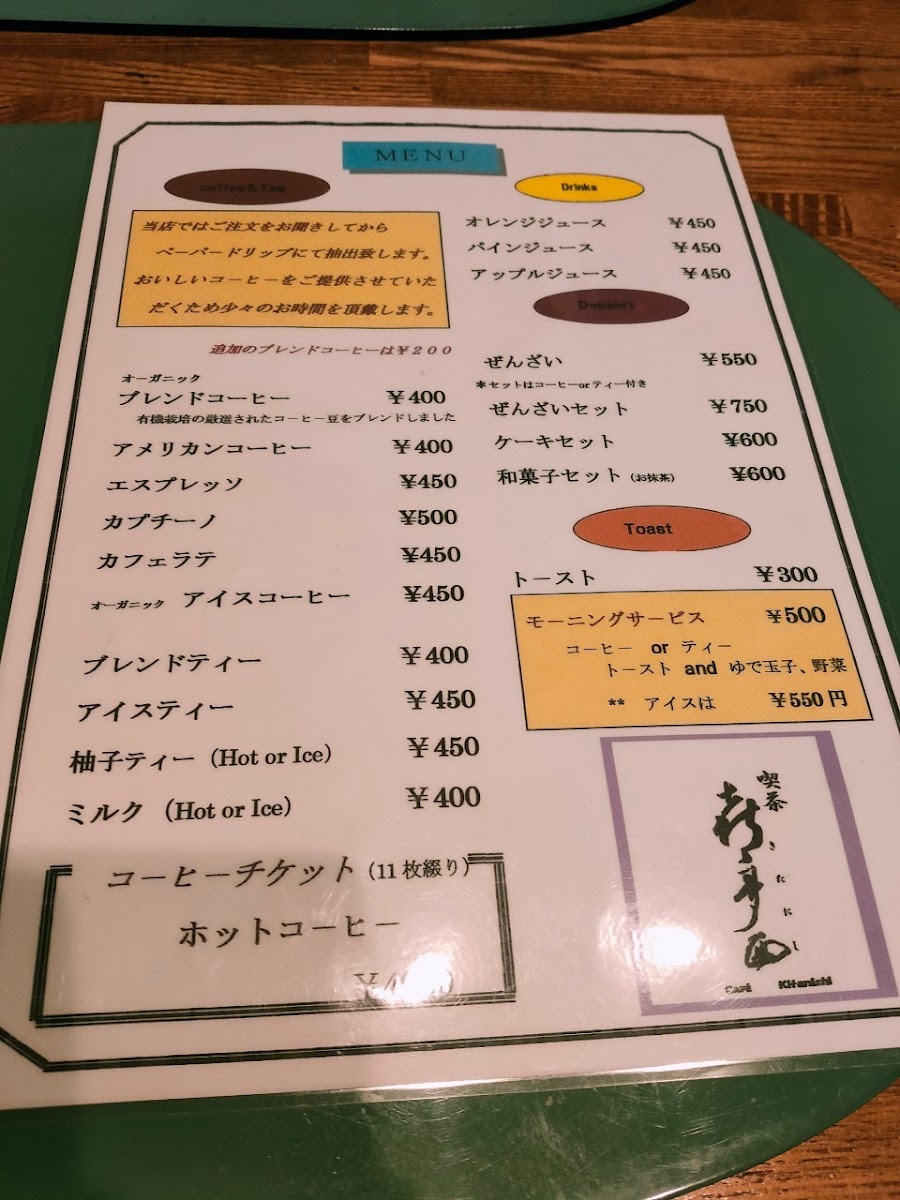 MENU
Coffee&Tea
当店ではご注文をお聞きしてから
ペーパードリップにて抽出致します。
おいしいコーヒーをご提供させていた
だくため少々のお時間を頂戴します。
追加のブレンドコーヒーは￥200
オーガニック
ブレンドコーヒー ￥400
有機栽培の厳選されたコーヒー豆をブレンドしました
アメリカンコーヒー ￥400
エスプレッソ ¥450
カプチーノ ¥500
カフェラテ ¥450
オーガニック アイスコーヒー ¥450
ブレンドティー ￥400
アイスティー ￥450
柚子ティー（Hot or Ice） ￥450
ミルク （Hot or Ice） ￥400
コーヒーチケット（11枚綴り）
ホットコーヒー
Drinks
オレンジジュース ￥450
パインジュース ￥450
アップルジュース ￥450
Dessert
ぜんざい ￥550
＊セットはコーヒーorティー付き
ぜんざいセット ￥750
ケーキセット ¥600
和菓子セット（お抹茶） ¥600
Toast
トースト ￥300
モーニングサービス ¥500
コーヒー or ティー
トースト and ゆで玉子、野菜
** アイスは ¥550円
喫茶
きたにし
CAFÉ Kitanishi